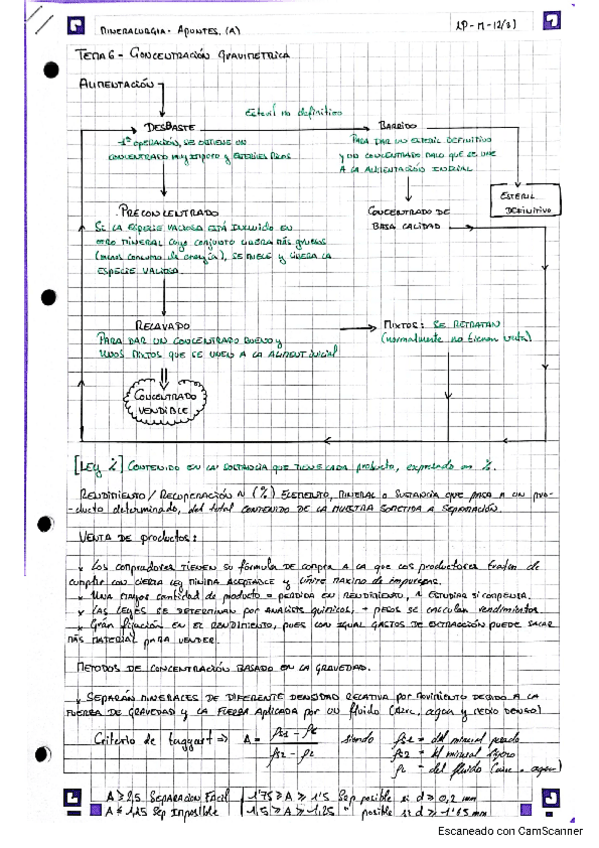 MINERALURGIA - APUNTES. (A)
LP-M-12/31
TEMA 6 - CONCENTRACIÓN GRAVIMETRICA
ALIMENTACIÓN
Esteril no definitivo
DESBASTE
BARRIDO
1ª OPERACIÓN, SE OBTIENE UN
CONCENTRADO MUY IMPURO Y ESTERILES RICOS
PARA DAR UN ESTERIL DEFINITIVO
Y UN CONCENTRADO MALO QUE SE UNE
A LA ALIMENTACIÓN INICIAL
ESTERIL
DEFINITIVO
PRECONCENTRADO
CONCENTRADO DE
BAJA CALIDAD
SI LA ESPECIE VALIOSA ESTÁ INCLUIDO EN
OTRO MINERAL cuyo conjunto LIBERA MÁS gruesos
(menos consumo de energía), SE MUELE Y LIBERA LA
ESPECIE VALIOSA.
RELAVADO
MIXTOS: SE RETRATAN
PARA DAR UN CONCENTRADO BUENO Y
UNOS MIXTOS QUE SE UNEN A LA ALIMENT. INICIAL
(normalmente no tienen venta)
CONCENTRADO
VENDIBLE
[LEY %] CONTENIDO EN LA SUSTANCIA QUE TIENE CADA producto, expresado en %.
RENDIMIENTO / RECUPERACIÓN ~ (%) ELEMENTO, MINERAL o SUSTANCIA QUE PASA A UN pro-
-ducto determinado, del total CONTENIDO DE LA MUESTRA SOMETIDA A SEPARACIÓN.
VENTA DE productos:
x LOS COMPRADORES TIENEN SU fórmula DE COMPRA A LA QUE LOS PRODUCTORES tratan de
cumplir con CIERTA LEY MINIMA ACEPTABLE y LÍMITE MAXIMO de impurezas.
x UNA MAYOR CANTIDAD DE PRODUCTO = PERDIDA EN RENDIMIENTO, A ESTUDIAR SI COMPENSA.
x LAS LEYES SE DETERMINAN POR ANALISIS QUIMICOS, + PESOS SE CALCULAN rendimientos.
x Gran fijación EN EL RENDIMIENTO, PUES CON IGUAL GASTOS DE EXTRACCIÓN PUEDE SACAR
MÁS MATERIAL PARA VENDER.
METODOS DE CONCENTRACIÓN BASADO EN LA GRAVEDAD.
x SEPARAN MINERALES DE DIFERENTE DENSIDAD RELATIVA por MOVIMIENTO DEBIDO A LA
FUERZA DE GRAVEDAD y LA FUERZA APLICADA POR UN fluido (aire, agua y medio denso)
Criterio de taggart => A = (ρs1 - ρL) / (ρs2 - ρL) siendo ρs1 = del mineral pesado
ρs2 = del mineral ligero
ρL = del fluido (aire o agua)
A ≥ 2,5 SEPARACION FACIL | 1'75 ≥ A ≥ 1'5 Sep posible si d ≥ 0,2 mm
A ≤ 1,25 Sep IMPOSIBLE | 1,5 ≥ A ≥ 1,25 " posible si d ≥ 1'65 mm
Escaneado con CamScanner